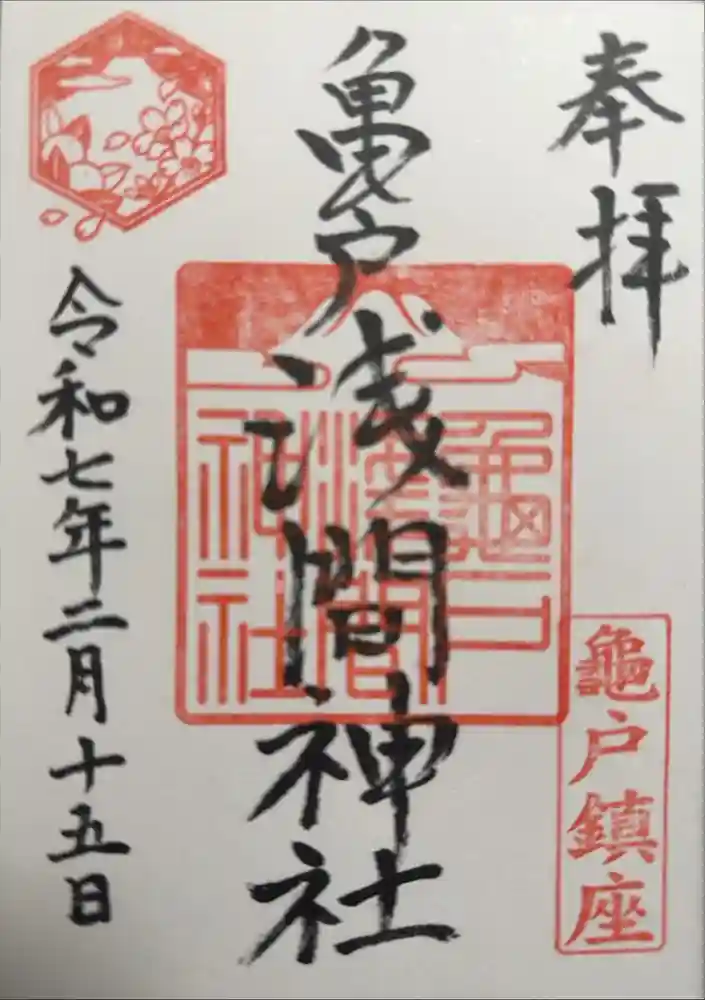 奉拝
龜戸鎮座
亀戸浅間神社
龜戸
淺間
神社
令和七年二月十五日